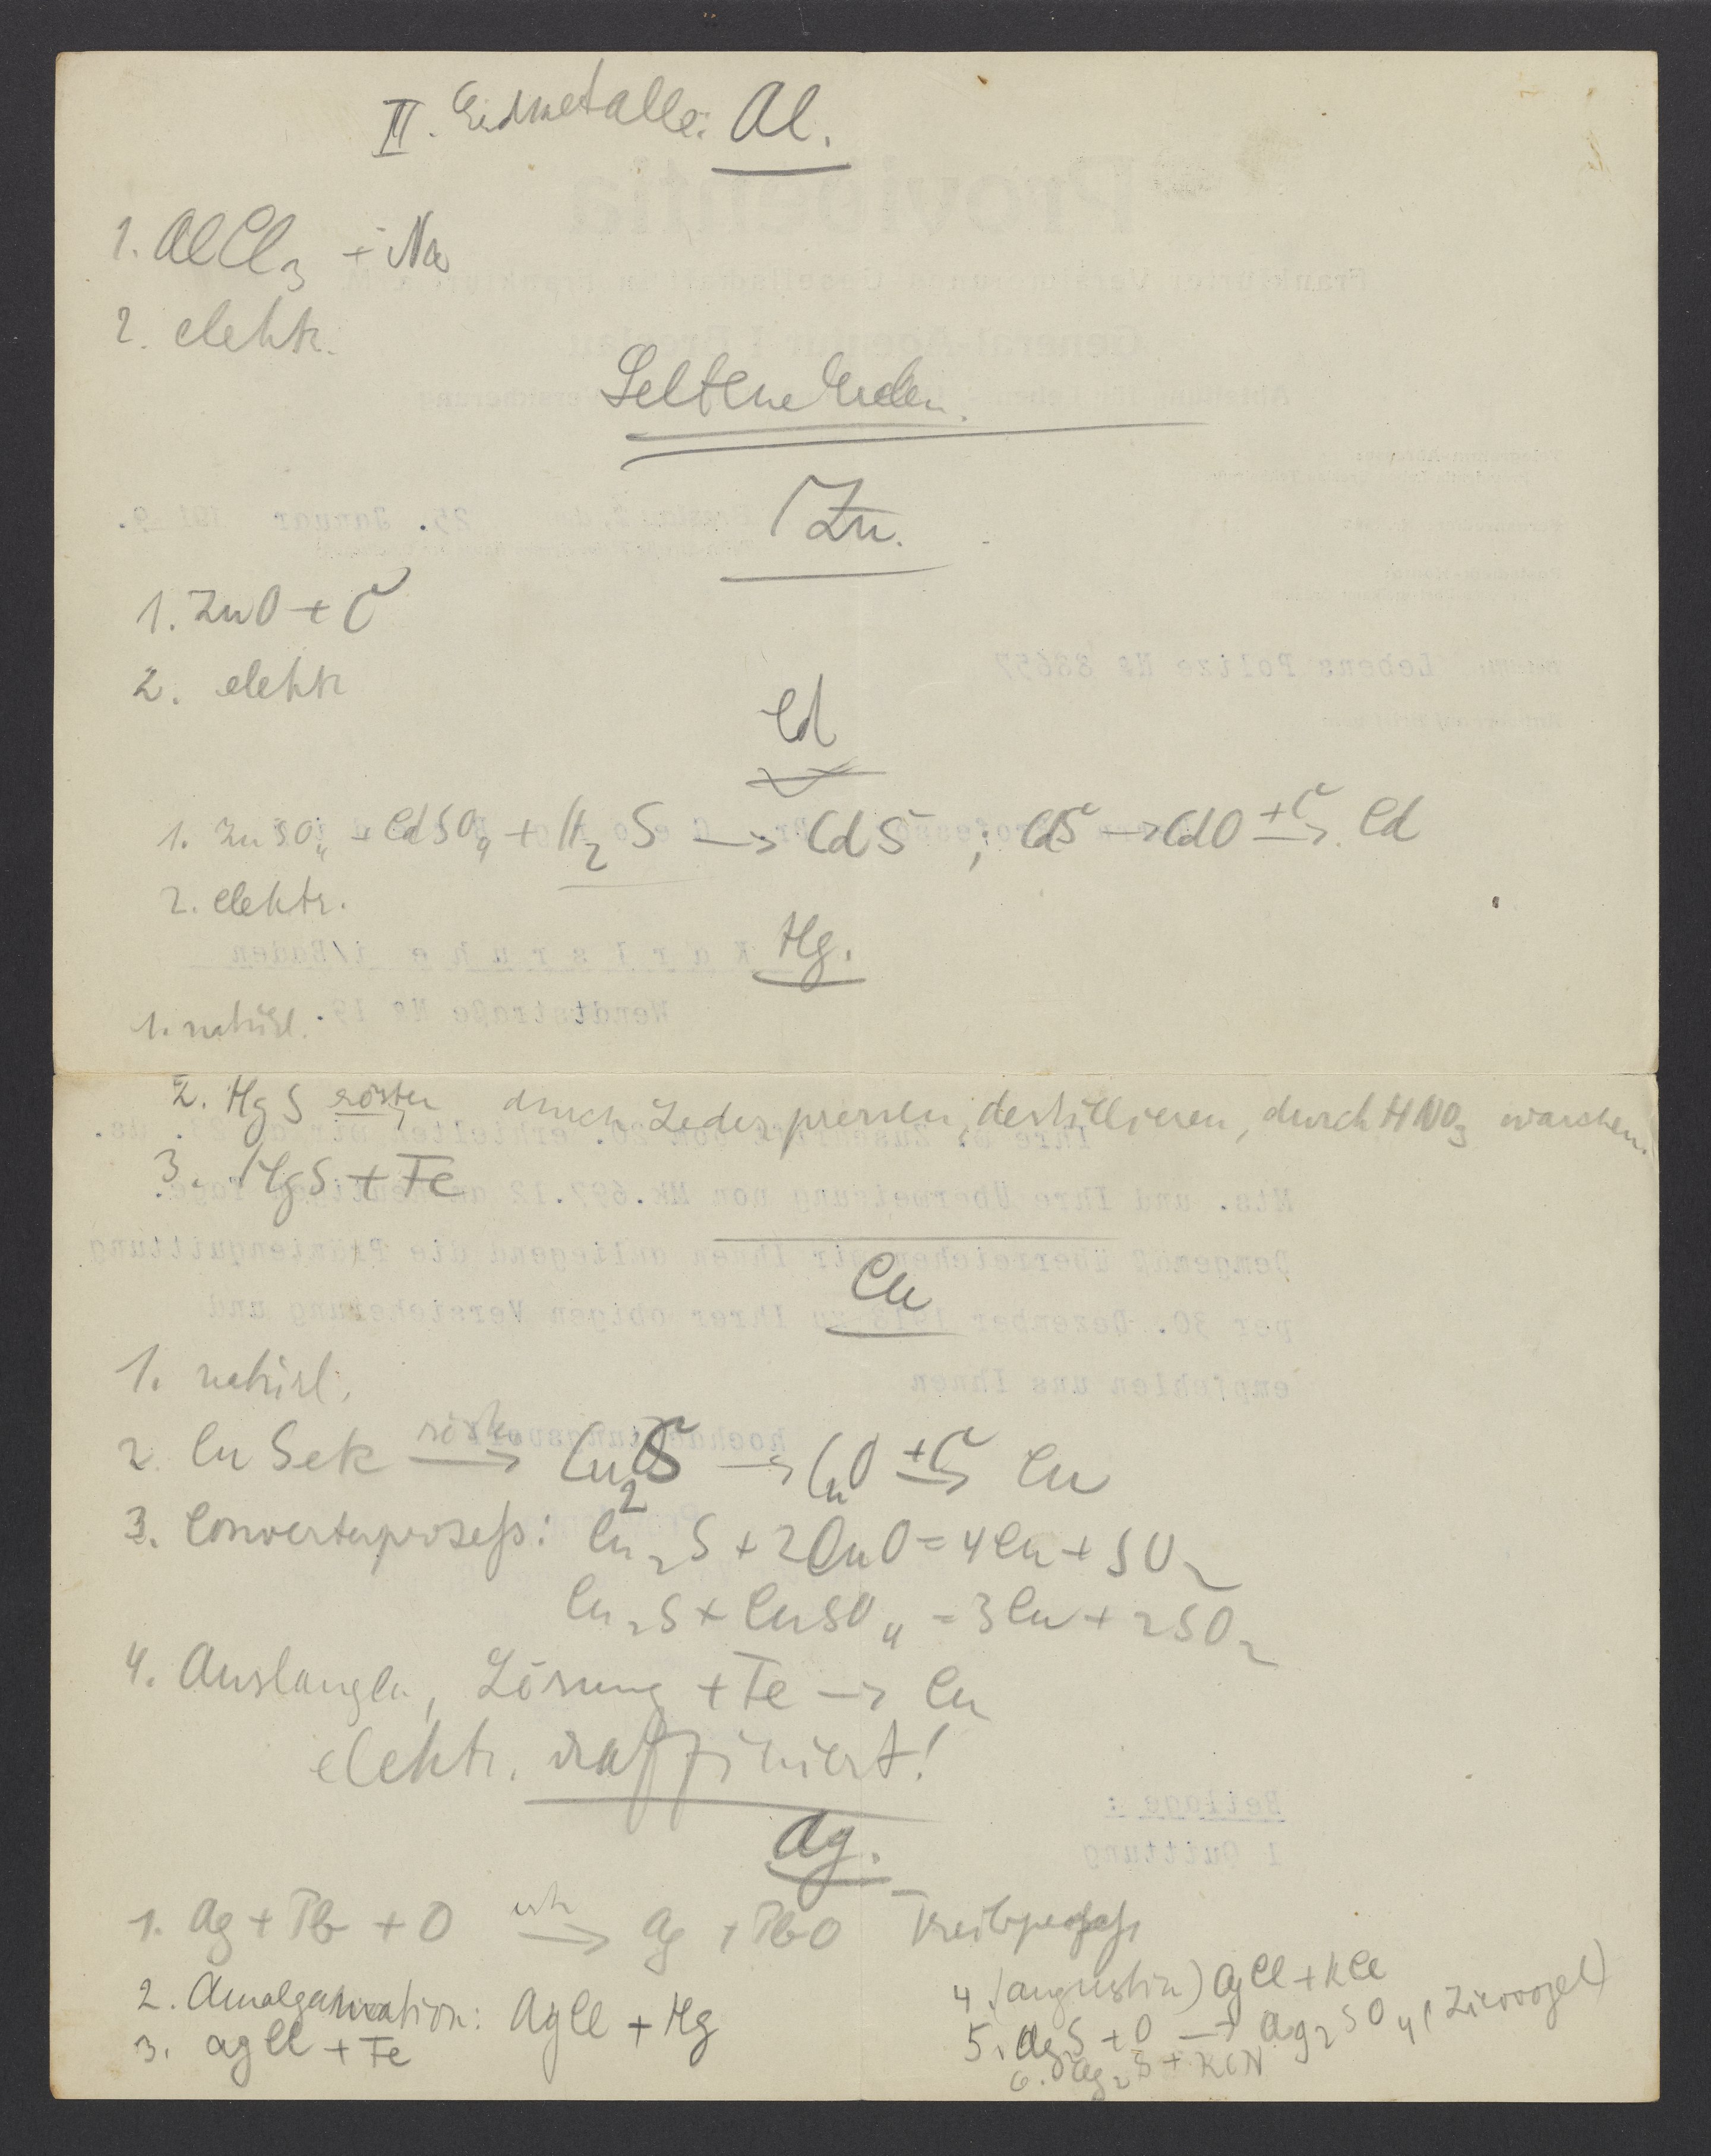 III. Erdmetalle: Al.
1. AlCl3 + Na
2. elektr.
Seltene Erden.
Zn.
1. ZnO + C
2. elektr
Cd
1. ZnSO4 + CdSO4 + H2S → CdS ; CdS → CdO +C→ Cd
2. elektr.
Hg.
1. natürl.
2. HgS rösten, durch Leder pressen, destillieren, durch HNO3 waschen.
3. HgS + Fe
Cu
1. natürl.
2. Cu S etc rösten→ Cu2S → CuO +C→ Cu
3. Converterprozeß: Cu2S + 2CuO = 4Cu + SO2
Cu2S + CuSO4 = 3Cu + 2SO2
4. Auslaugen, Lösung + Fe → Cu
elektr. raffiniert!
Ag.
1. Ag + Pb + O erh→ Ag + PbO Treibprozeß
2. Amalgamation: AgCl + Hg
3. AgCl + Fe
4. (Augustin) AgCl + KCl
5. Ag2S + O → Ag2SO4 (Ziervogel)
6. Ag2S + KCN
Providentia
Frankfurter Versicherungs-Gesellschaft in Frankfurt a. M.
General-Agentur Breslau
25. Januar 191 9.
Lebens Polize № 33657
Karlsruhe i/Baden
Wendtstraße № 19.
Mts. und Ihre Überweisung von Mk. 697.12
Demgemäß überreichen wir Ihnen anliegend die Prämienquittung
per 30. Dezember 1918 zu Ihrer obigen Versicherung und
empfehlen uns Ihnen
hochachtungsvoll
Beilage :
1 Quittung